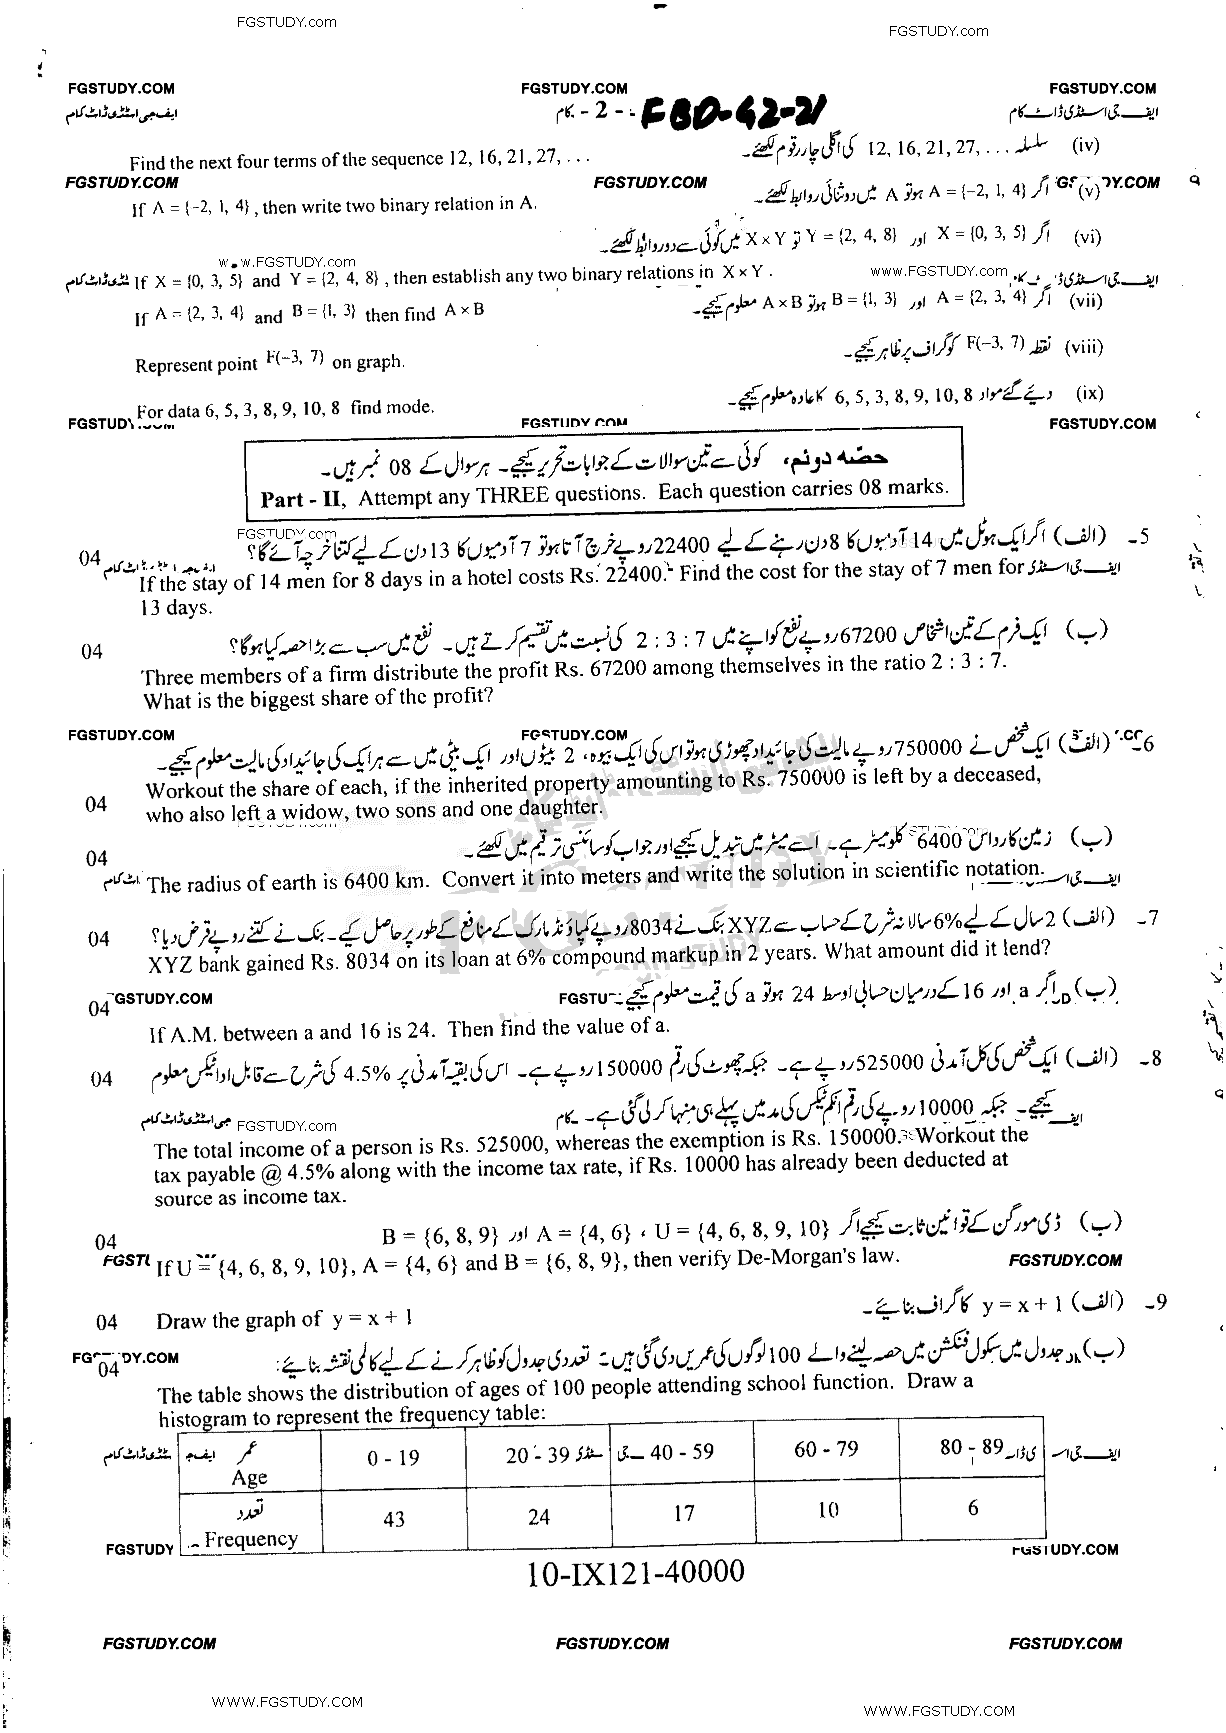 FGSTUDY.com
FGSTUDY.com
FGSTUDY.COM FGSTUDY.COM FGSTUDY.COM
ایف جی اسٹڈی ڈاٹ کام کام - 2 - FBD-42-21 ایف جی اسٹڈی ڈاٹ کام
(iv) سلسلہ 12, 16, 21, 27, . . . کی اگلی چار رقوم لکھئے۔
Find the next four terms of the sequence 12, 16, 21, 27, . . .
FGSTUDY.COM FGSTUDY.COM DY.COM
(v) اگر A = {-2, 1, 4} ہو تو A میں دو ثنائی روابط لکھئے۔
If A = {-2, 1, 4} , then write two binary relation in A.
(vi) اگر X = {0, 3, 5} اور Y = {2, 4, 8} تو X × Y میں کوئی سے دو روابط لکھئے۔
w.w.FGSTUDY.com www.FGSTUDY.com
If X = {0, 3, 5} and Y = {2, 4, 8} , then establish any two binary relations in X × Y .
(vii) اگر A = {2, 3, 4} اور B = {1, 3} ہو تو A × B معلوم کیجیے۔
If A = {2, 3, 4} and B = {1, 3} then find A × B
(viii) نقطہ F(−3, 7) کو گراف پر ظاہر کیجیے۔
Represent point F(−3, 7) on graph.
(ix) دیئے گئے مواد 6, 5, 3, 8, 9, 10, 8 کا عادہ معلوم کیجیے۔
For data 6, 5, 3, 8, 9, 10, 8 find mode.
FGSTUDY.COM FGSTUDY.COM FGSTUDY.COM
حصّہ دوئم، کوئی سے تین سوالات کے جوابات تحریر کیجیے۔ ہر سوال کے 08 نمبر ہیں۔
Part - II, Attempt any THREE questions. Each question carries 08 marks.
FGSTUDY.com
5۔ (الف) اگر ایک ہوٹل میں 14 آدمیوں کا 8 دن رہنے کے لیے 22400 روپے خرچ آتا ہو تو 7 آدمیوں کا 13 دن کے لیے کتنا خرچ آئے گا؟ 04
If the stay of 14 men for 8 days in a hotel costs Rs. 22400. Find the cost for the stay of 7 men for
13 days.
(ب) ایک فرم کے تین اشخاص 67200 روپے نفع کو اپنے میں 2 : 3 : 7 کی نسبت میں تقسیم کرتے ہیں۔ نفع میں سب سے بڑا حصہ کیا ہوگا؟ 04
Three members of a firm distribute the profit Rs. 67200 among themselves in the ratio 2 : 3 : 7.
What is the biggest share of the profit?
FGSTUDY.COM FGSTUDY.COM
6۔ (الف) ایک شخص نے 750000 روپے مالیت کی جائیداد چھوڑی ہو تو اس کی ایک بیوہ، 2 بیٹوں اور ایک بیٹی میں سے ہر ایک کی جائیداد کی مالیت معلوم کیجیے۔
Workout the share of each, if the inherited property amounting to Rs. 750000 is left by a deceased,
04 who also left a widow, two sons and one daughter.
(ب) زمین کا رداس 6400 کلومیٹر ہے۔ اسے میٹر میں تبدیل کیجیے اور جواب کو سائنسی ترقیم میں لکھئے۔ 04
The radius of earth is 6400 km. Convert it into meters and write the solution in scientific notation.
7۔ (الف) 2 سال کے لیے 6% سالانہ شرح کے حساب سے XYZ بنک نے 8034 روپے کمپاؤنڈ مارک کے منافع کے طور پر حاصل کیے۔ بنک نے کتنے روپے قرض دیا؟ 04
XYZ bank gained Rs. 8034 on its loan at 6% compound markup in 2 years. What amount did it lend?
(ب) اگر a اور 16 کے درمیان حسابی اوسط 24 ہو تو a کی قیمت معلوم کیجیے۔ 04
If A.M. between a and 16 is 24. Then find the value of a.
8۔ (الف) ایک شخص کی کل آمدنی 525000 روپے ہے۔ جبکہ چھوٹ کی رقم 150000 روپے ہے۔ اس کی بقیہ آمدنی پر 4.5% کی شرح سے قابل ادا ٹیکس معلوم 04
کیجیے۔ جبکہ 10000 روپے کی رقم انکم ٹیکس کی مد میں پہلے ہی منہا کر لی گئی ہے۔
FGSTUDY.com
The total income of a person is Rs. 525000, whereas the exemption is Rs. 150000. Workout the
tax payable @ 4.5% along with the income tax rate, if Rs. 10000 has already been deducted at
source as income tax.
(ب) ڈی مورگن کے قوانین ثابت کیجیے اگر U = {4, 6, 8, 9, 10} ، A = {4, 6} اور B = {6, 8, 9} 04
If U = {4, 6, 8, 9, 10}, A = {4, 6} and B = {6, 8, 9}, then verify De-Morgan's law. FGSTUDY.COM
9۔ (الف) y = x + 1 کا گراف بنائیے۔
04 Draw the graph of y = x + 1
(ب) جدول میں سکول فنکشن میں حصہ لینے والے 100 لوگوں کی عمریں دی گئی ہیں۔ تعددی جدول کو ظاہر کرنے کے لیے کالمی نقشہ بنائیے: 04
The table shows the distribution of ages of 100 people attending school function. Draw a
histogram to represent the frequency table:
عمر Age 0 - 19 20 - 39 40 - 59 60 - 79 80 - 89
تعدد Frequency 43 24 17 10 6
FGSTUDY FGSTUDY.COM
10-IX121-40000
FGSTUDY.COM FGSTUDY.COM FGSTUDY.COM
WWW.FGSTUDY.COM WWW.FGSTUDY.COM